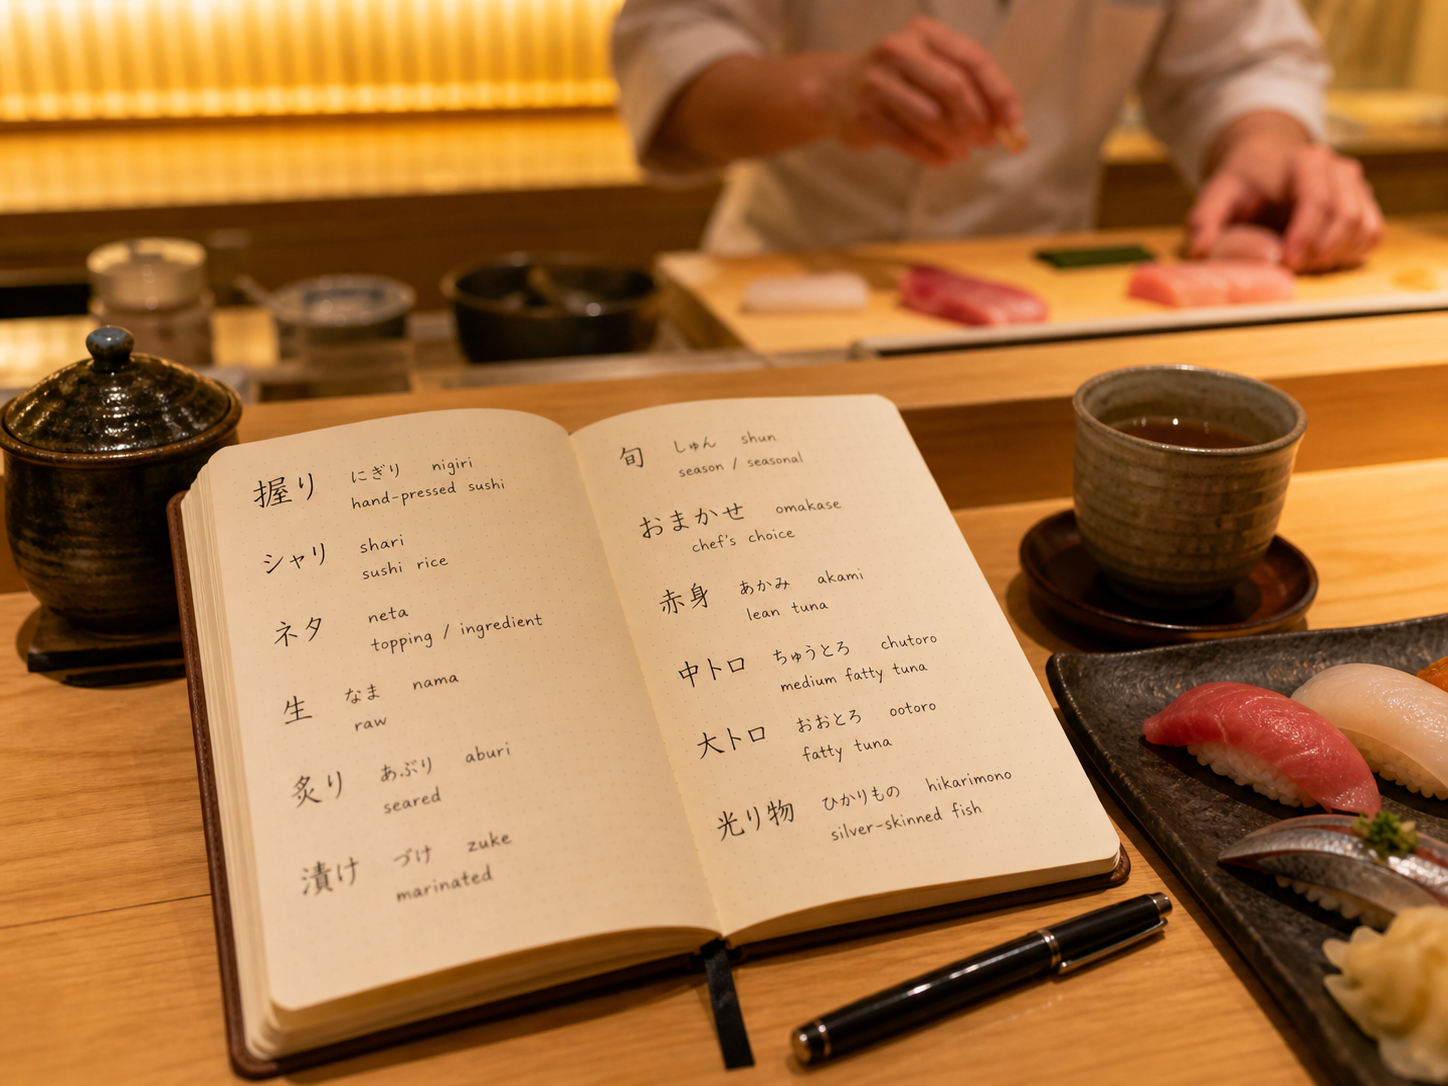 握り にぎり nigiri
hand-pressed sushi
シャリ shari
sushi rice
ネタ neta
topping / ingredient
生 なま nama
raw
炙り あぶり aburi
seared
漬け づけ zuke
marinated
旬 しゅん shun
season / seasonal
おまかせ omakase
chef's choice
赤身 あかみ akami
lean tuna
中トロ ちゅうとろ chutoro
medium fatty tuna
大トロ おおとろ ootoro
fatty tuna
光り物 ひかりもの hikarimono
silver-skinned fish